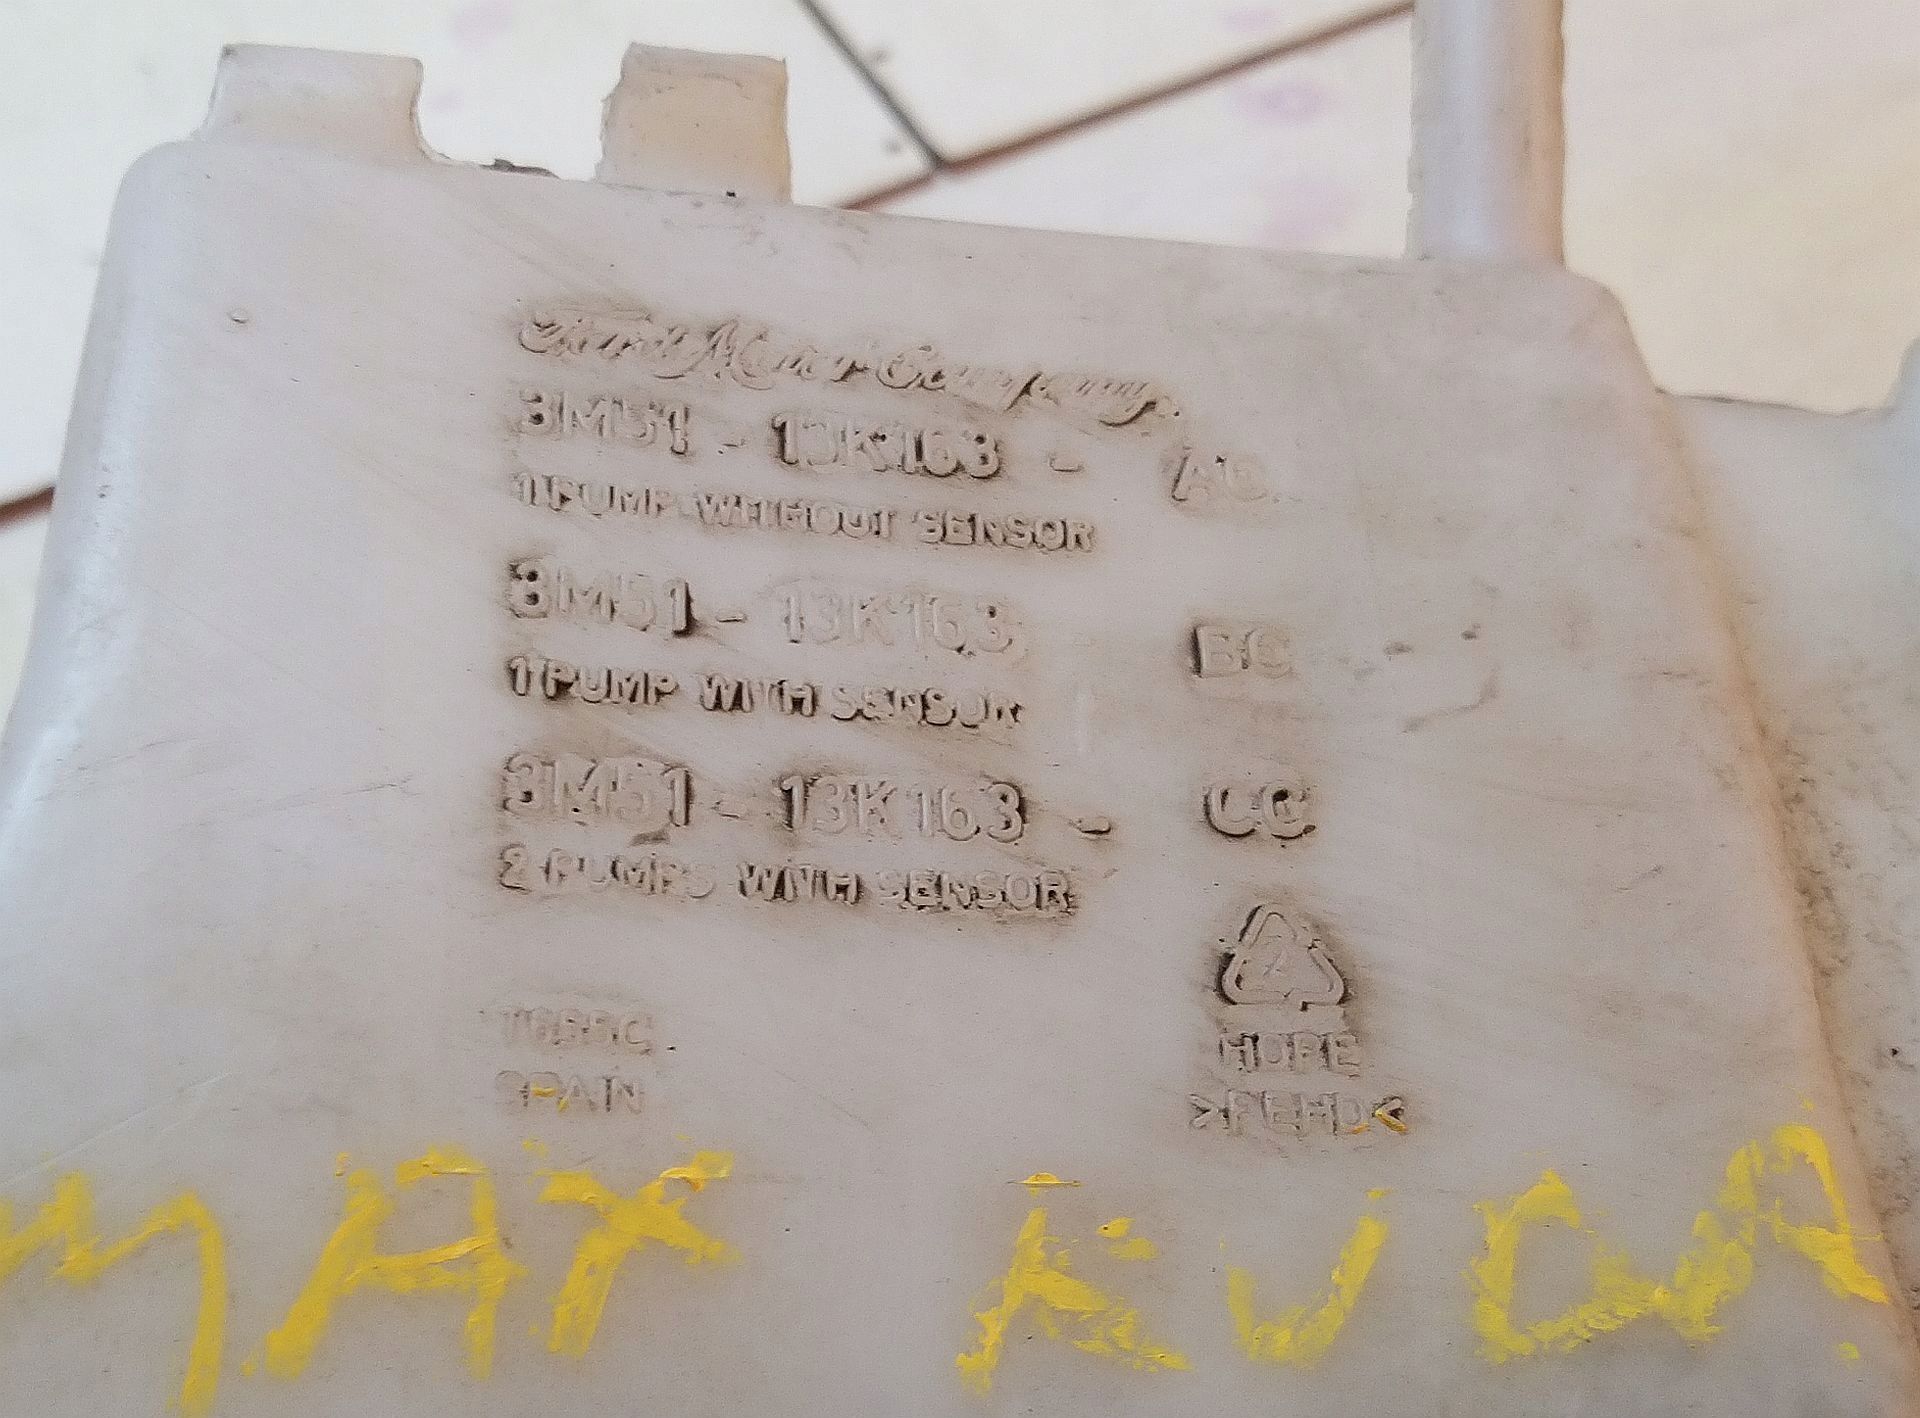 Ford Motor Company
3M51 - 13K163 - AC
1 PUMP WITHOUT SENSOR
3M51 - 13K163 BC
1 PUMP WITH SENSOR
3M51 - 13K163 - CC
2 PUMPS WITH SENSOR
2
HDPE
SPAIN
>PEHD<
MAX